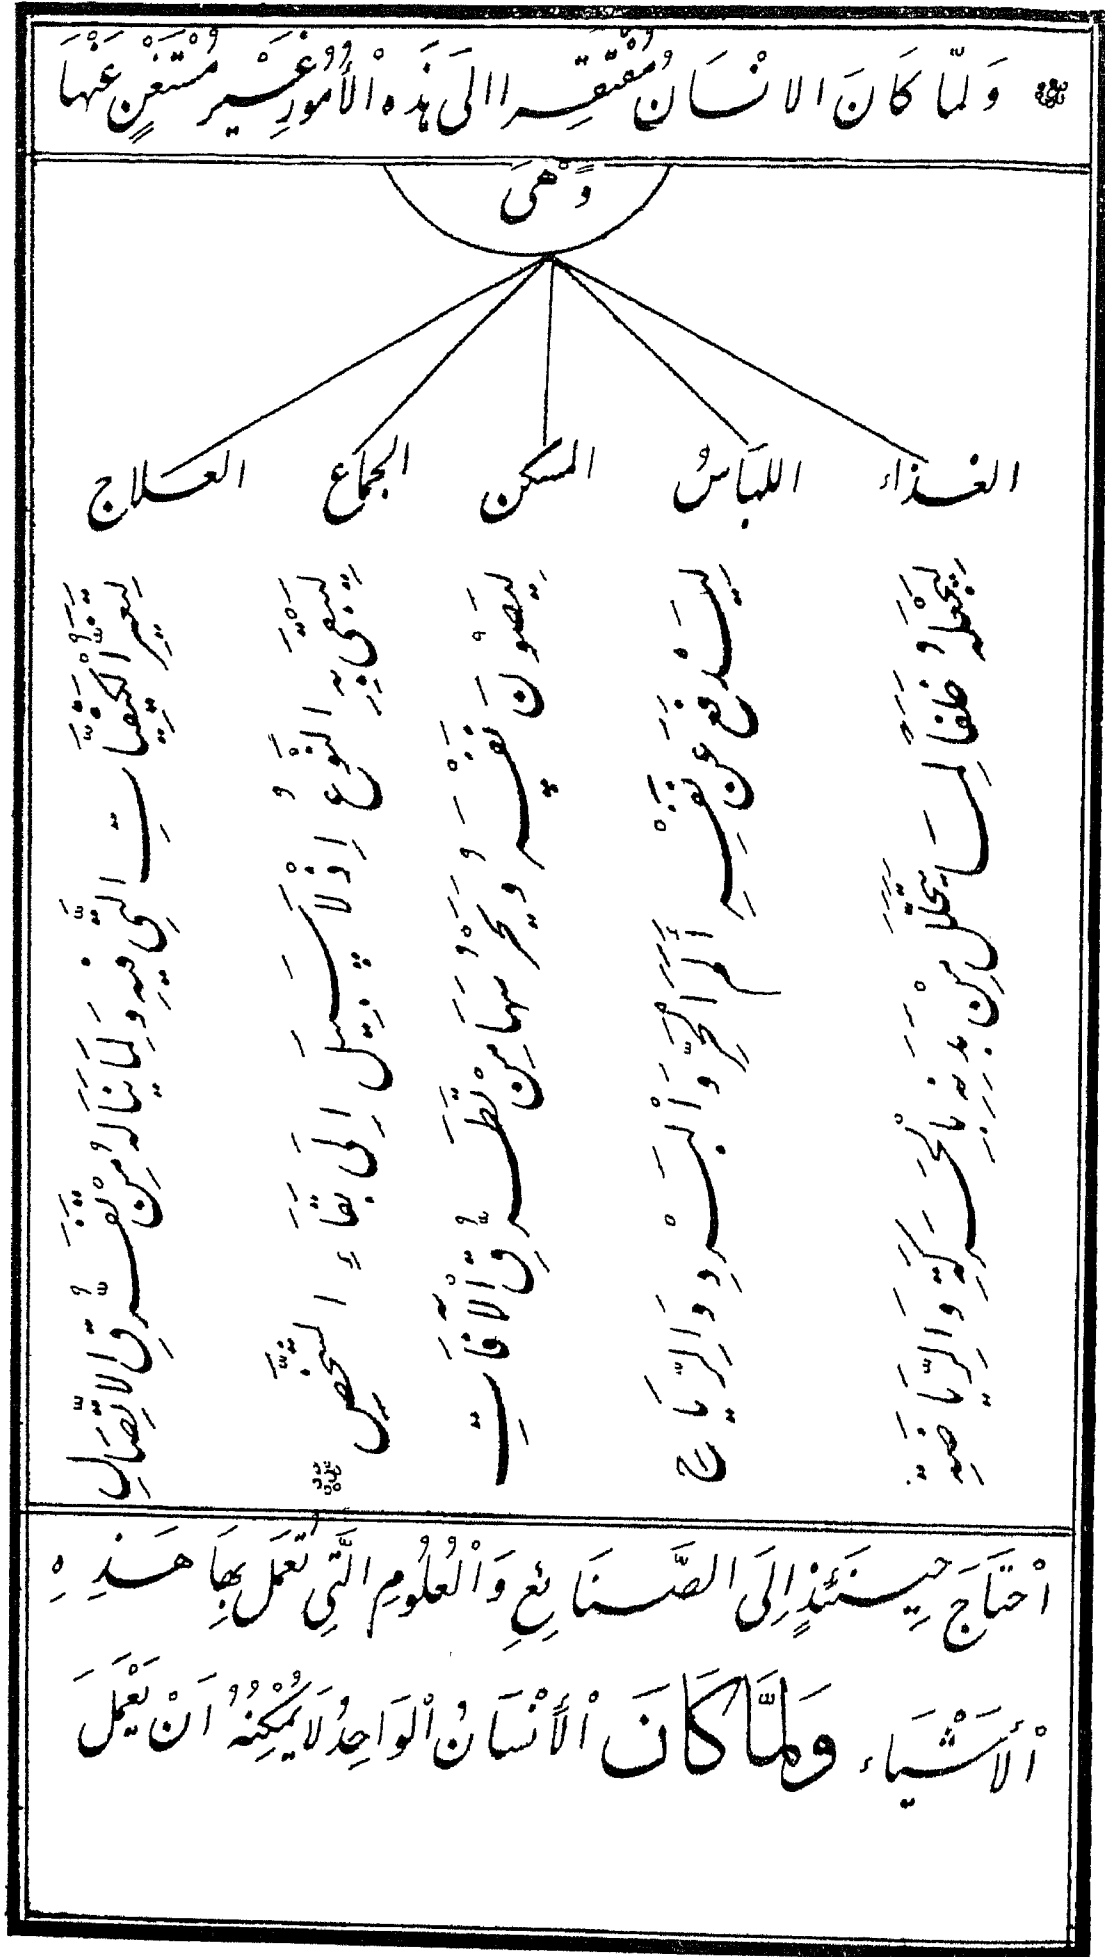 وَلَمّا كَانَ الانْسَانُ مُفْتَقِرا الىَ هَذِه الْأُمُورِ غَيْر مُسْتَغْنٍ عَنْهَا
وَهْىَ
الغْذاء
اللبَاسُ
المسَكن
الجمَاع
العلاج
لِيَجْعَلَهُ خَلَفاً لِمَا يَتَحَلَّلَ مِنْ بَدَنِهِ بِالْحَرَكَةِ وَالرِّيَاضَةِ
لِيَدْفَعَ عَنْ نَفْسِهِ أَلَمَ الحَرِّ وَالْبَرْدِ وَالرِّيَاحِ
لِيَصُوْنَ نَفْسَهُ وَيُحْرِسُهَا مِنْ تَطَرُّقِ الْآفَاتِ
لِيَبْقَى بِهِ النَّوْعُ اِذْ لَا سَبِيْلَ اِلىَ بَقَاءِ الشَّخْصِ
لِتَغَيُّرِ الْكَيْفِيَّاتِ الَّتِى فِيْهِ وَلِمَا يَنَالَهُ مِنْ تَفَرُّقِ الاتِّصَالِ
احْتَاجَ حِينَئِذٍ اِلَى الصَّنَائِعِ وَالْعُلُومِ الَّتىِ تُعْمَل بِهَا هَذِهِ
الْأَشْيَاء وَلمَّا كَانَ الْأَنْسَانُ الْوَاحِدُ لاَ يُمْكِنُهُ اَنْ يَعْمَلَ